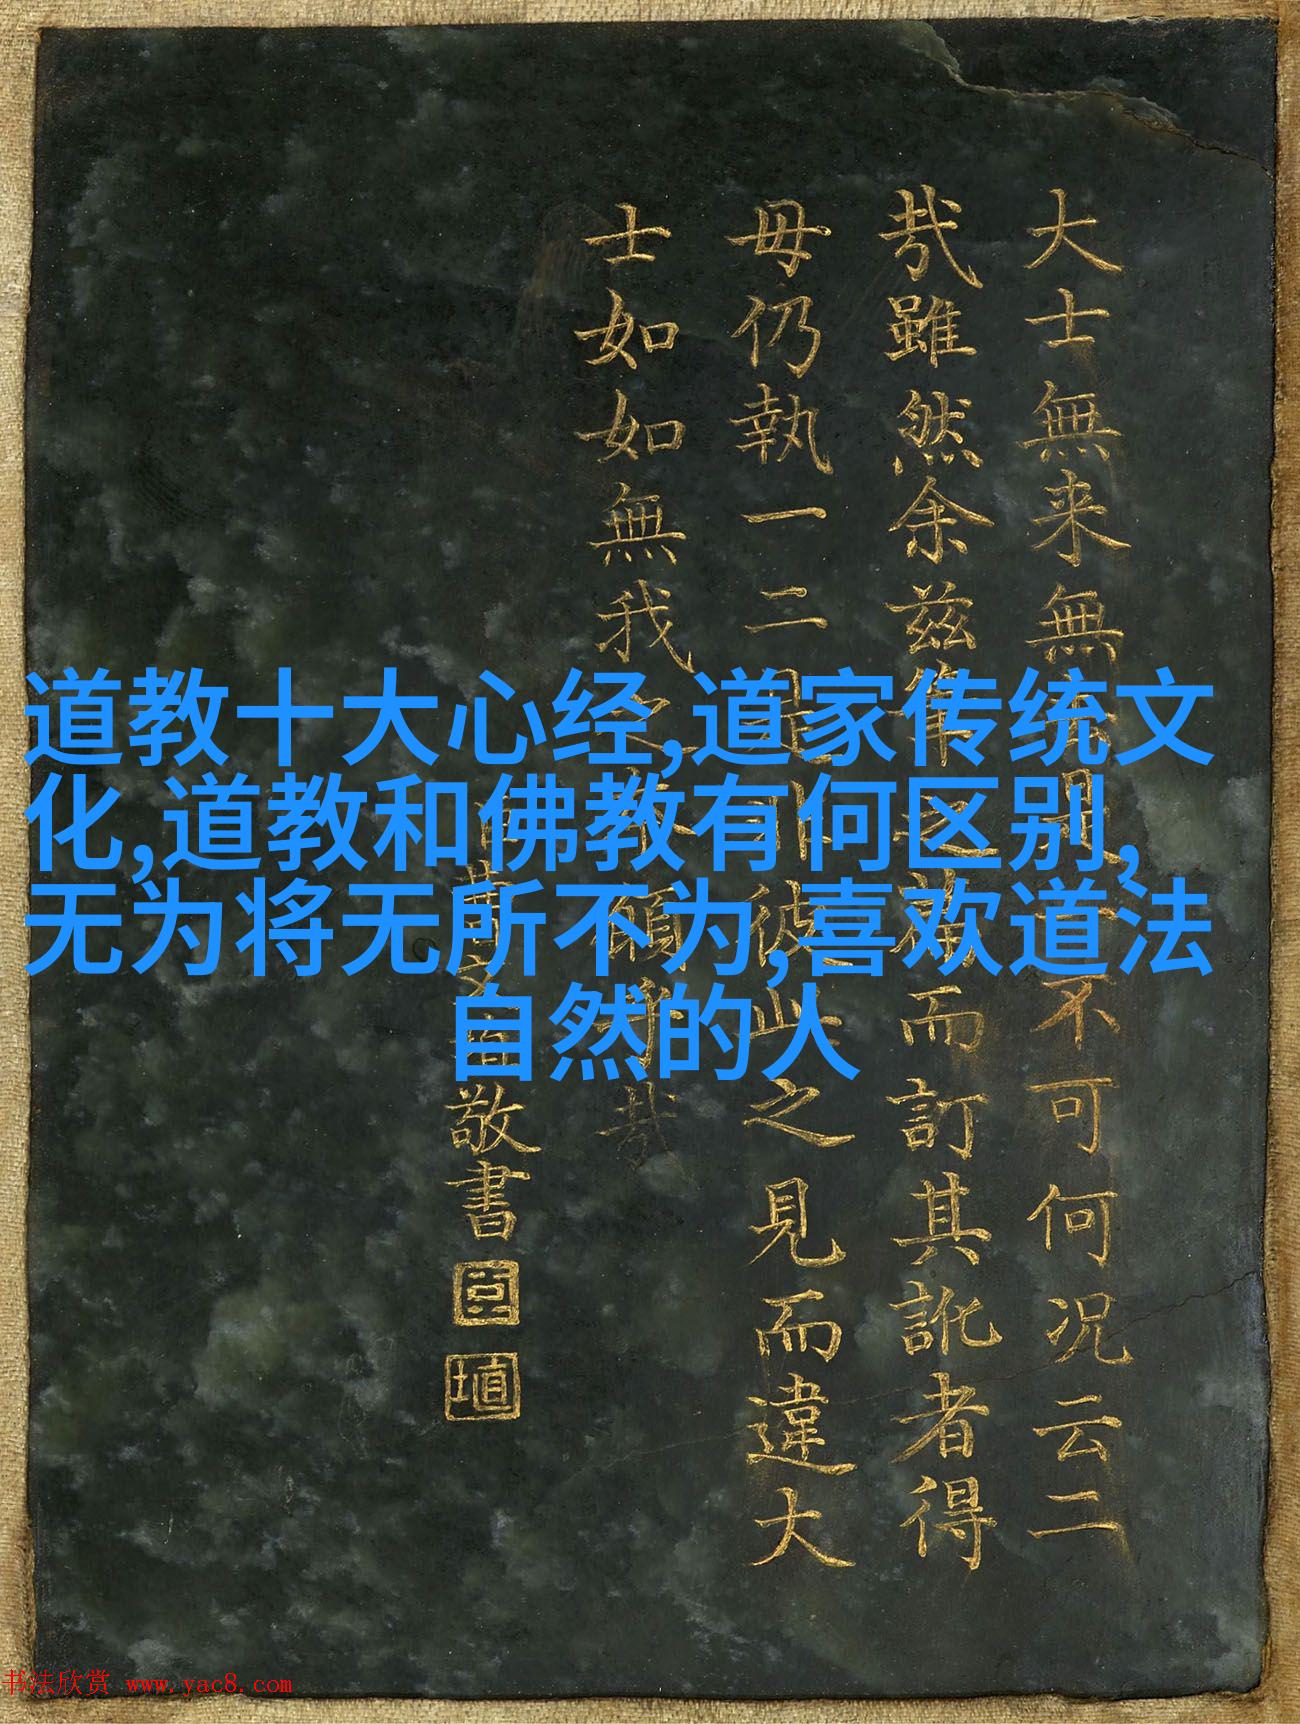 道教十大心经,道家传统文
化,道教和佛教有何区别,
无为将无所不为,喜欢道法
自然的人
大士無来無不可何况云二
哉雖然余兹之而訂其訛者得
毋仍執一二是非彼此之見而違大
士如如無我之本願哉
臣曹文埴敬書
臣
埴
书法欣赏 www.yac8.com